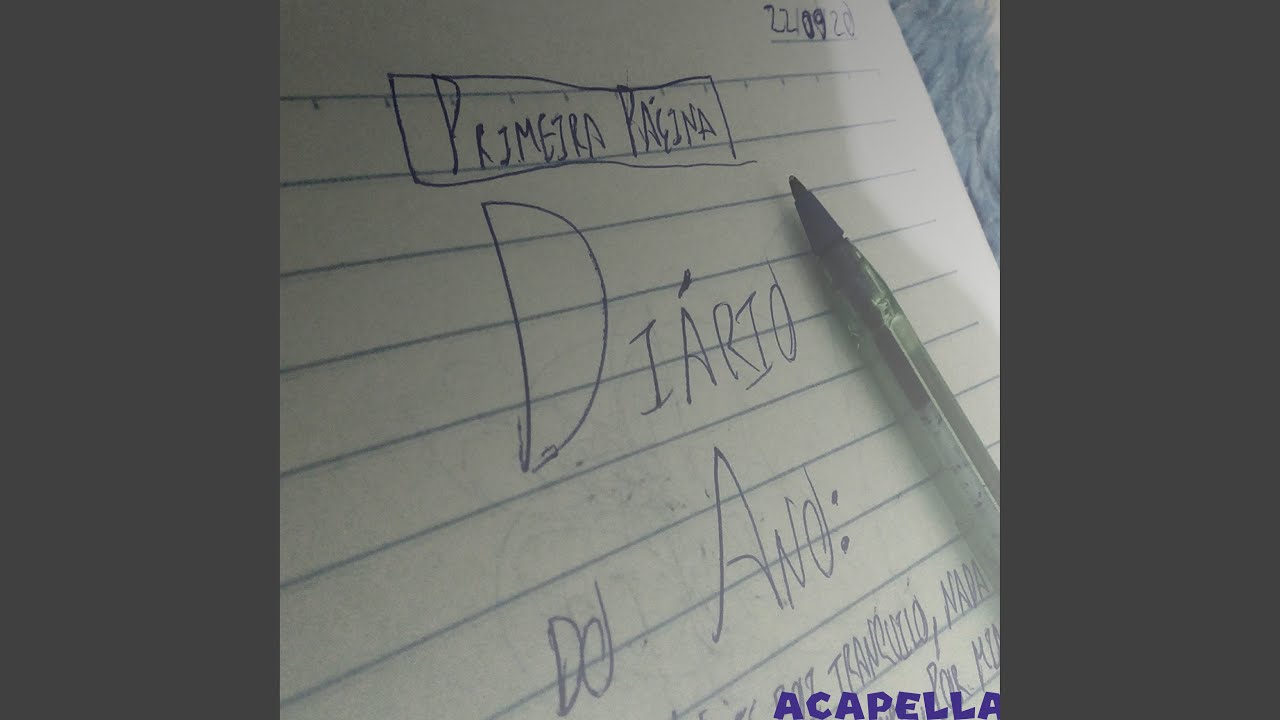 22/09 20
PRIMEIRA PÁGINA
DIÁRIO
DO ANO:
FOI TRANQUILO, NADA
POR MIM
ACAPELLA